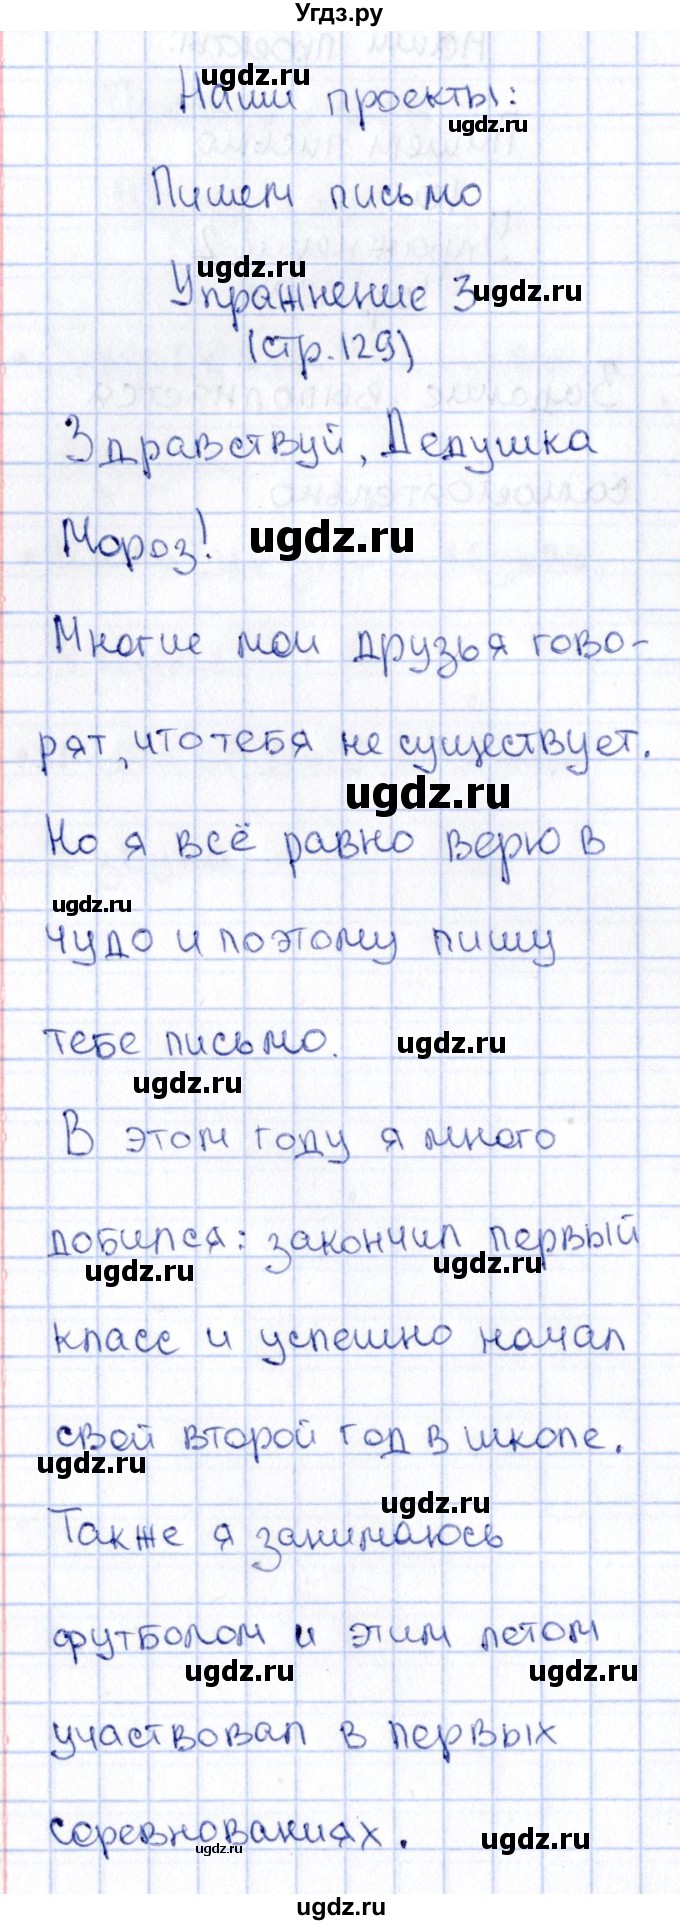 Угдз.ру
ugdz.ru
Наши проекты:
ugdz.ru
Пишем письмо
ugdz.ru
Упражнение 3
ugdz.ru
(стр.129)
Здравствуй, Дедушка
Мороз!
ugdz.ru
Многие мои друзья гово-
рят, что тебя не существует.
ugdz.ru
Но я всё равно верю в
ugdz.ru
чудо и поэтому пишу
тебе письмо.
ugdz.ru
ugdz.ru
В этом году я много
добился: закончил первый
ugdz.ru
ugdz.ru
класс и успешно начал
свой второй год в школе.
ugdz.ru
ugdz.ru
Также я занимаюсь
футболом и этим летом
ugdz.ru
ugdz.ru
участвовал в первых
соревнованиях.
ugdz.ru
ugdz.ru
ugdz.ru